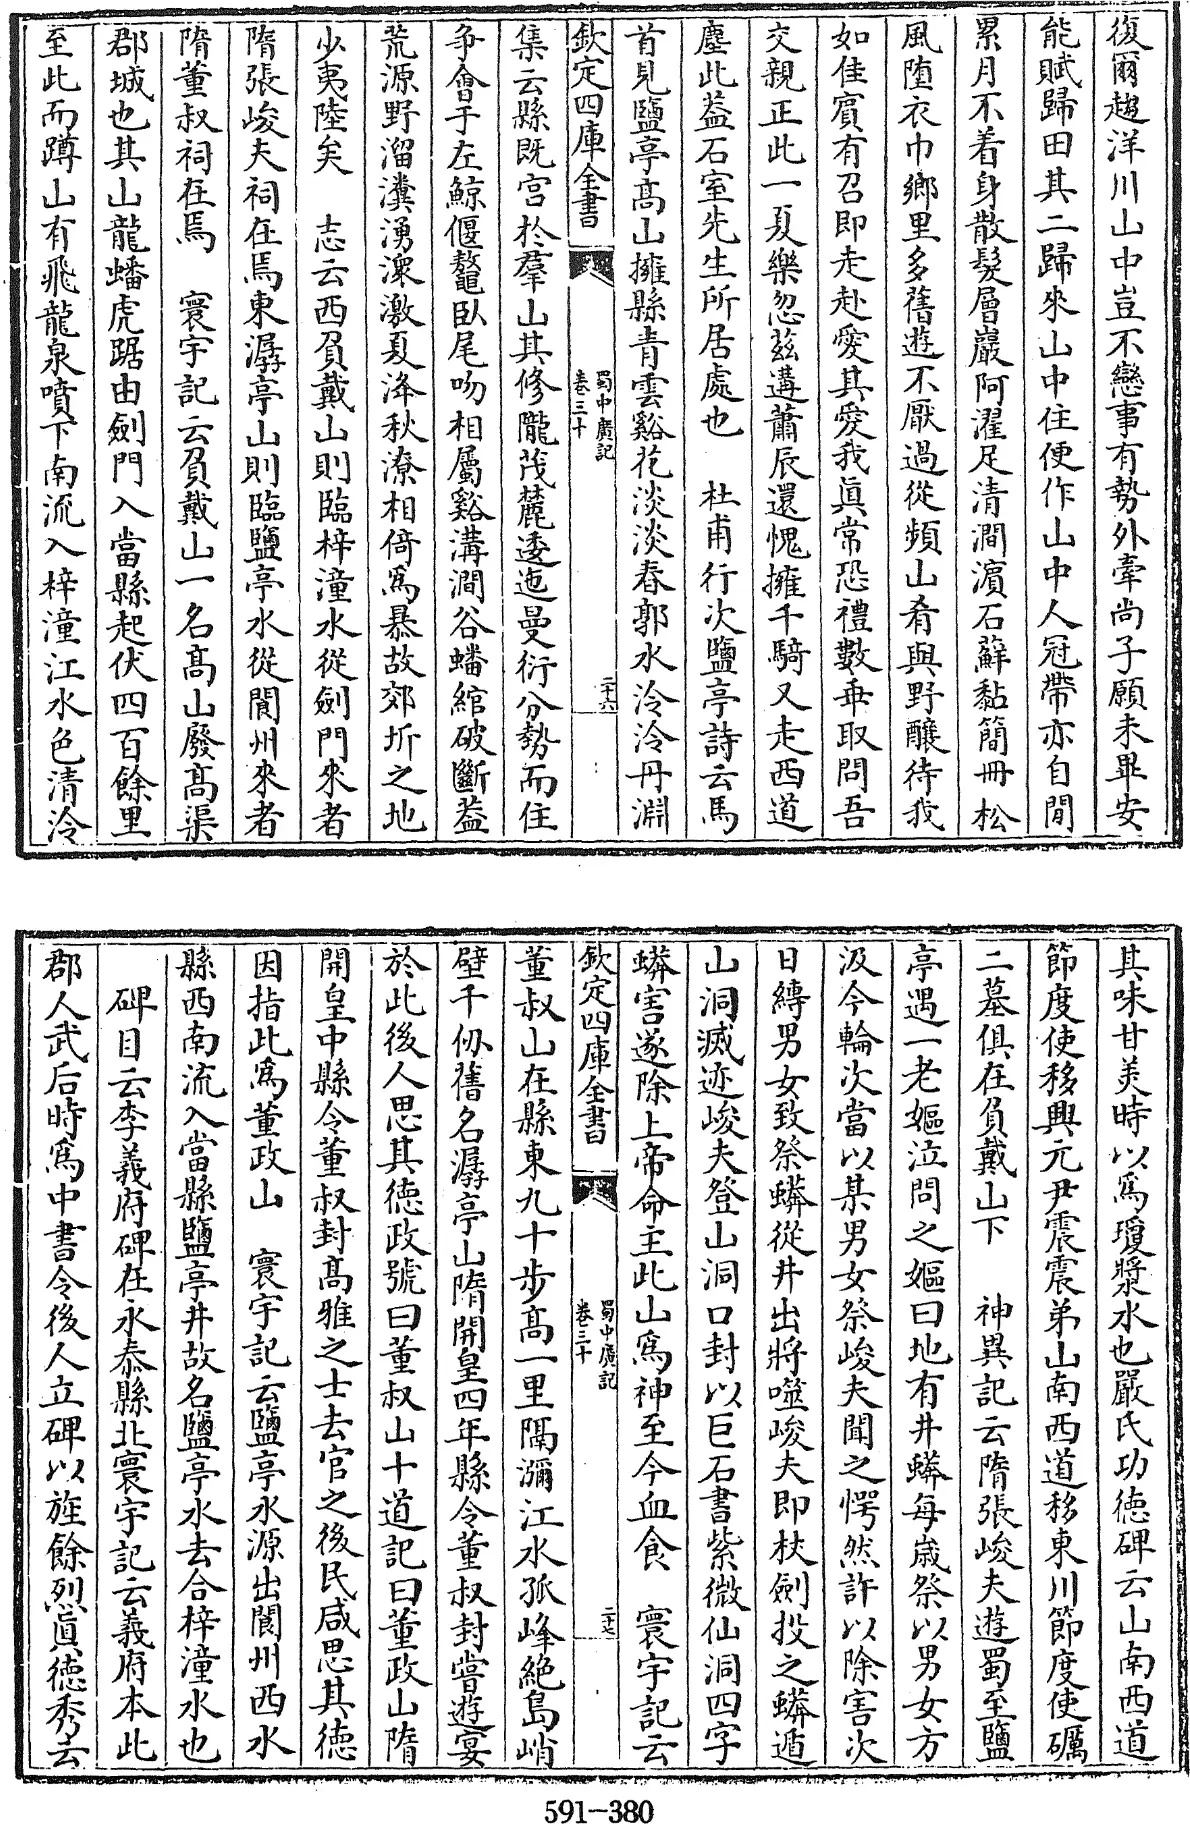 復爾趨洋川山中豈不戀事有勢外牽尚子願未畢安
能賦歸田其二歸來山中住便作山中人冠帶亦自閒
累月不着身散髮層巖阿濯足清澗濵石蘚黏簡冊松
風墮衣巾鄉里多舊遊不厭過從頻山肴與野釀待我
如佳賔有召即走赴愛其愛我真常恐禮數乖取問吾
交親正此一夏樂忽兹遘蕭辰還愧擁千騎又走西道
塵此葢石室先生所居處也　杜甫行次鹽亭詩云馬
首見鹽亭髙山擁縣青雲谿花淡淡春郭水泠泠丹淵
欽定四庫全書
蜀中廣記
卷三十
二十六
集云縣既宫於羣山其修隴茂麓逶迤曼衍分勢而住
争會于左鯨偃鼇臥尾吻相屬谿溝澗谷蟠綰破斷葢
荒源野溜瀵湧漻激夏洚秋潦相倚為暴故郊圻之地
少夷陸矣　志云西負戴山則臨梓潼水從劍門來者
隋張峻夫祠在焉東潺亭山則臨鹽亭水從閬州來者
隋董叔祠在焉　寰宇記云負戴山一名髙山廢髙渠
郡城也其山龍蟠虎踞由劍門入當縣起伏四百餘里
至此而蹲山有飛龍泉噴下南流入梓潼江水色清泠
其味甘美時以為瓊漿水也嚴氏功徳碑云山南西道
節度使移興元尹震震弟山南西道移東川節度使礪
二墓俱在負戴山下　神異記云隋張峻夫遊蜀至鹽
亭遇一老嫗泣問之嫗曰地有井蟒每歲祭以男女方
汲今輪次當以某男女祭峻夫聞之愕然許以除害次
日縛男女致祭蟒從井出將噬峻夫即杖劍投之蟒遁
山洞滅迹峻夫登山洞口封以巨石書紫微仙洞四字
蟒害遂除上帝命主此山為神至今血食　寰宇記云
欽定四庫全書
蜀中廣記
卷三十
二十七
董叔山在縣東九十步髙一里隔瀰江水孤峰絶島峭
壁千仭舊名潺亭山隋開皇四年縣令董叔封嘗遊宴
於此後人思其徳政號曰董叔山十道記曰董政山隋
開皇中縣令董叔封髙雅之士去官之後民咸思其徳
因指此為董政山　寰宇記云鹽亭水源出閬州西水
縣西南流入當縣鹽亭井故名鹽亭水去合梓潼水也
碑目云李義府碑在永泰縣北寰宇記云義府本此
郡人武后時為中書令後人立碑以旌餘烈真徳秀云
591-380